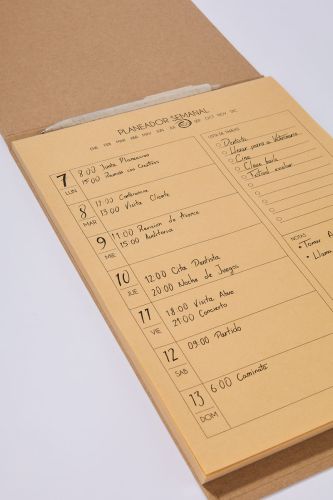 PLANEADOR SEMANAL
ENE FEB MAR ABR MAY JUN JUL AGO SEP OCT NOV DIC
7
LUN
8:00 Junta Planeacion
15:00 Reunión con Creativos
8
MAR
12:00 Conferencia
13:00 Visita Cliente
9
MIE
11:00 Revision de Avance
15:00 Auditoria
10
JUE
12:00 Cita Dentista
20:00 Noche de Juegos
11
VIE
18:00 Visita Abue
21:00 Concierto
12
SAB
09:00 Partido
13
DOM
6:00 Caminata
LISTA DE TAREAS
Dentista
Llevar perro a Veterinario
Cine
Clase baile
Festival escolar
NOTAS
• Tomar
• Llam